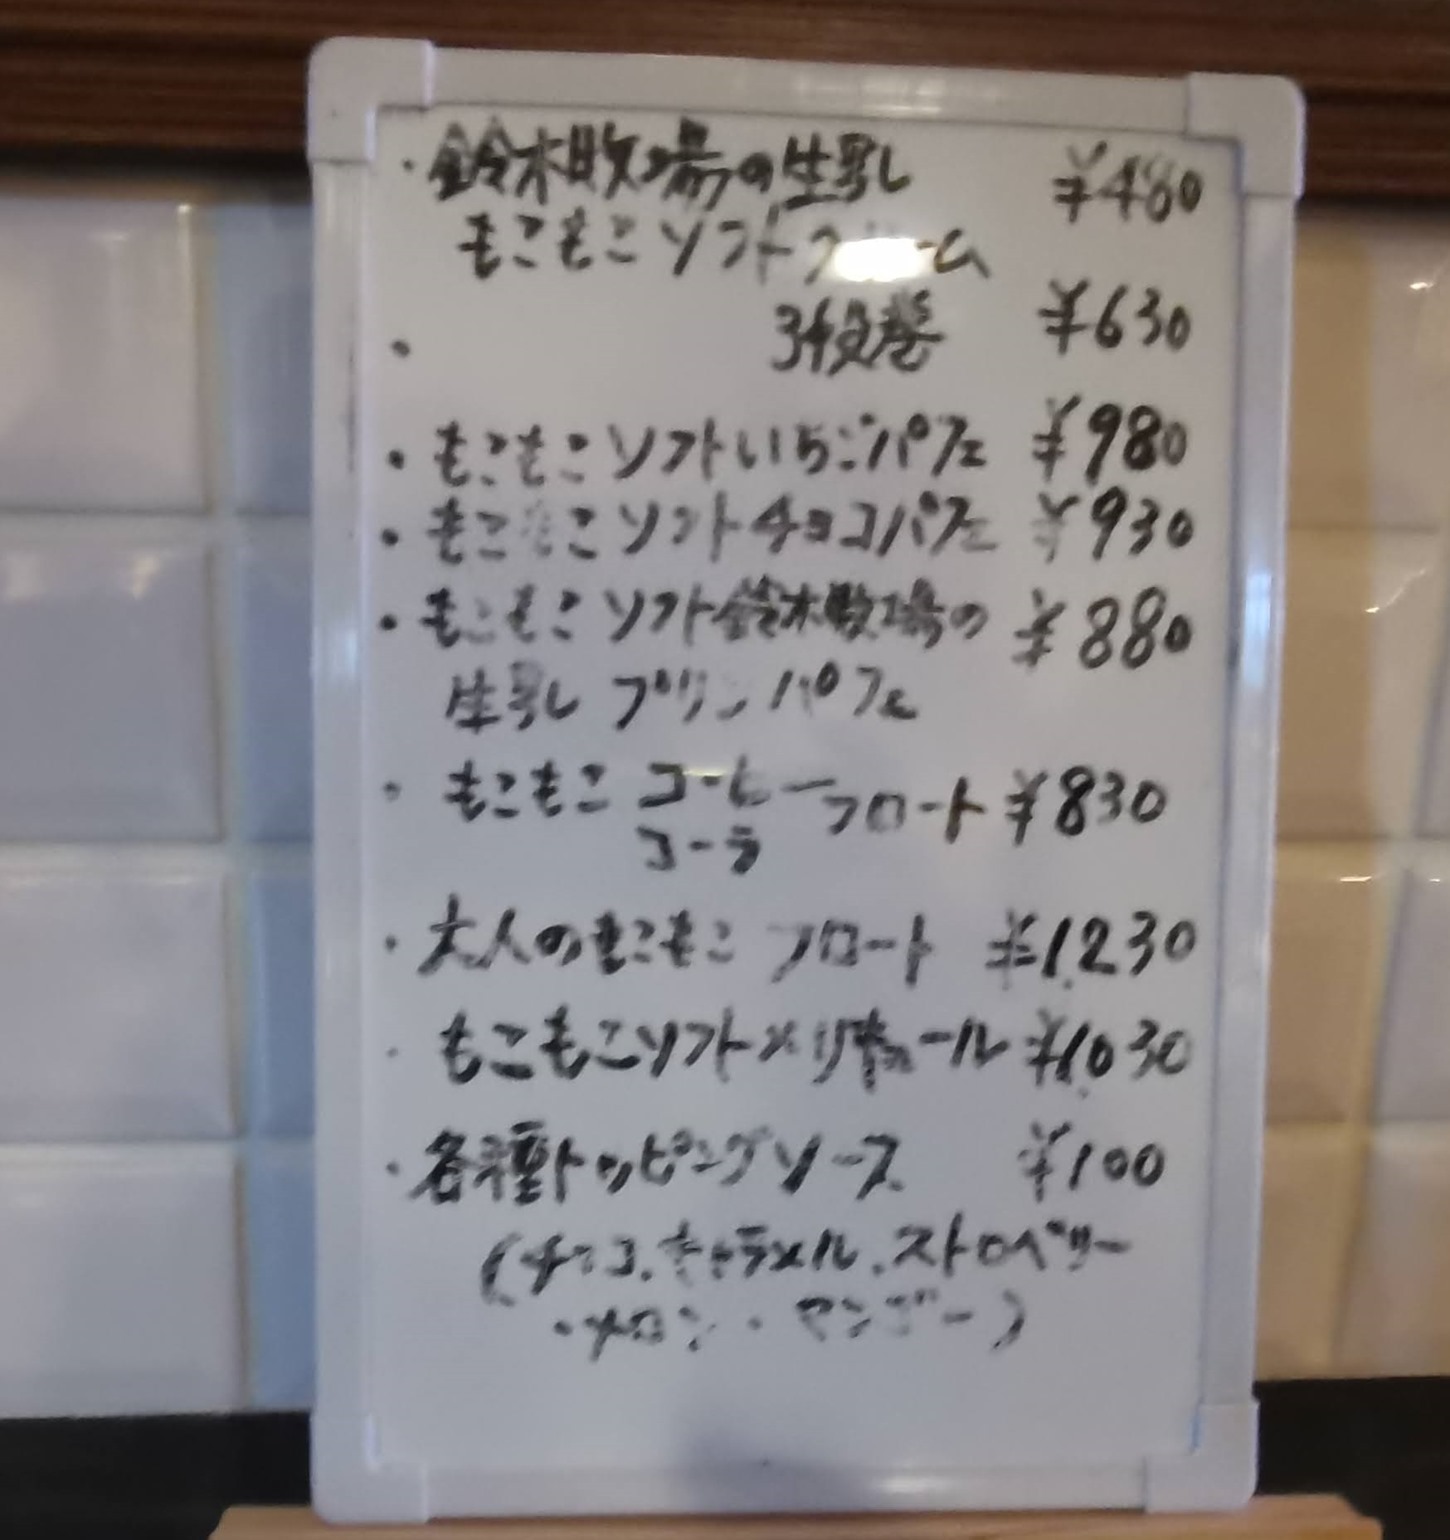 ・鈴木牧場の生乳 ¥480
もこもこソフトクリーム
・ 3段巻 ¥630
・もこもこソフトいちごパフェ ¥980
・もこもこソフトチョコパフェ ¥930
・もこもこソフト鈴木牧場の ¥880
生乳プリンパフェ
・もこもこ コーヒーフロート ¥830
コーラ
・大人のもこもこ フロート ¥1,230
・もこもこソフト×リキュール ¥1,030
・各種トッピングソース ¥100
(チョコ.キャラメル.ストロベリー
・メロン・マンゴー)